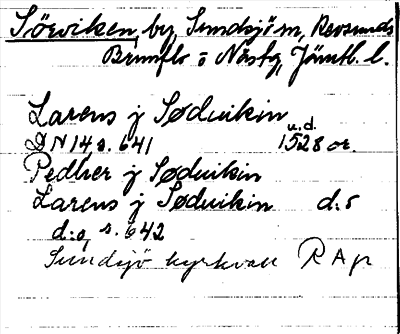 Sörviken, by, Sundsjö sn, Revsunds
Brunflo o Näs tg, Jämtl. l.
Larens j Søduikin
u.d.
DN 14 s. 641 1528 or.
Pedher j Søduikin
Larens j Søduikin d:o
d:o, s. 642
Sundsjö kyrkvall RAp